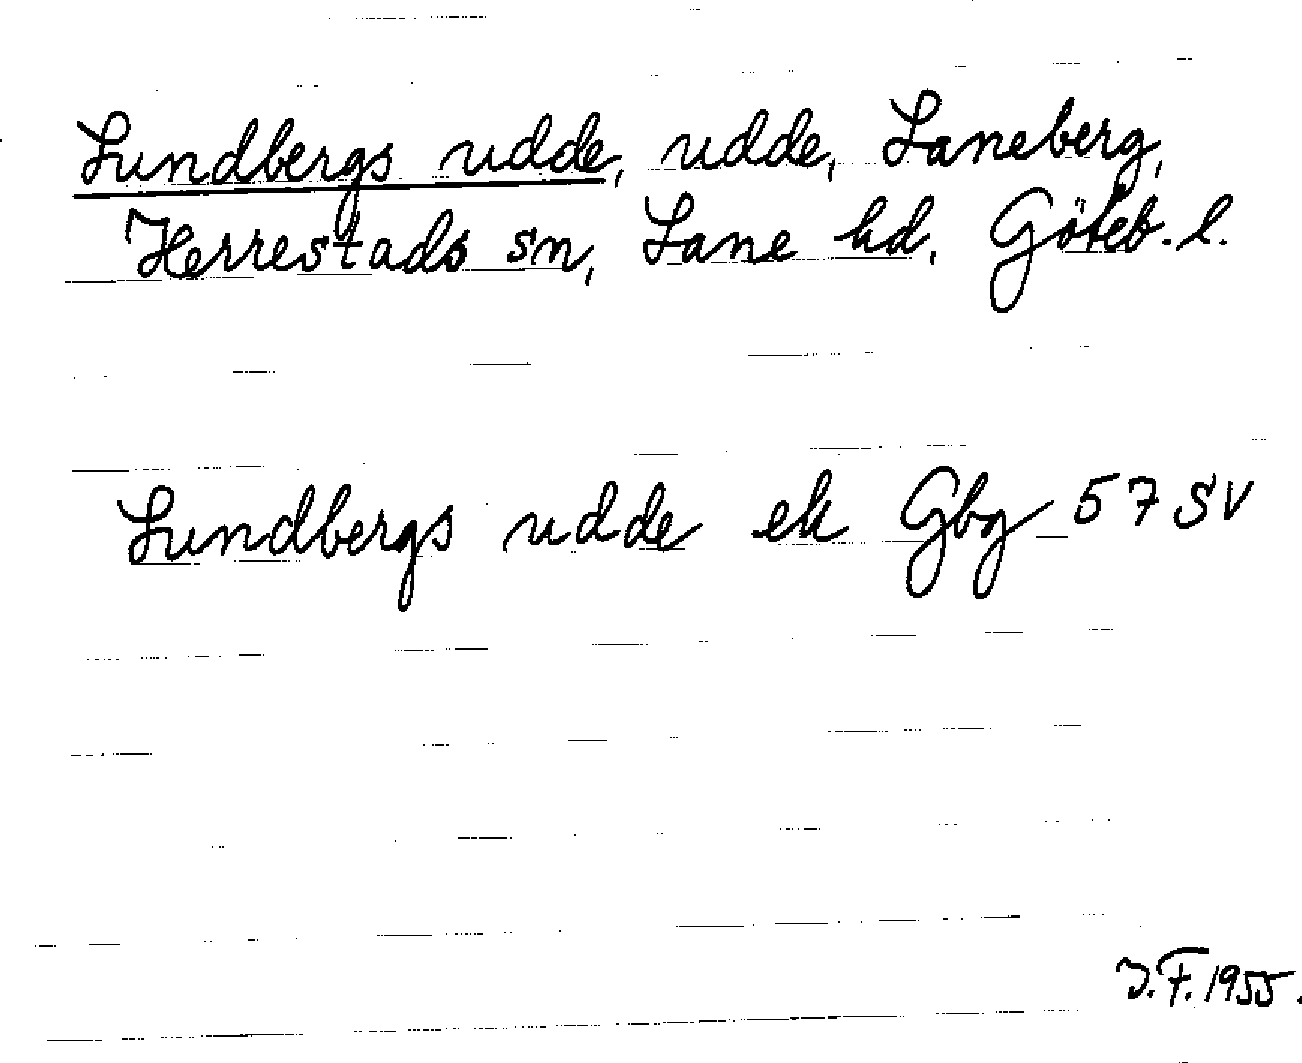 Lundbergs udde, udde, Laneberg,
Herrestads sn, Lane hd. Göteb. l.
Lundbergs udde ek Gbg 57 SV
J.F. 1955.